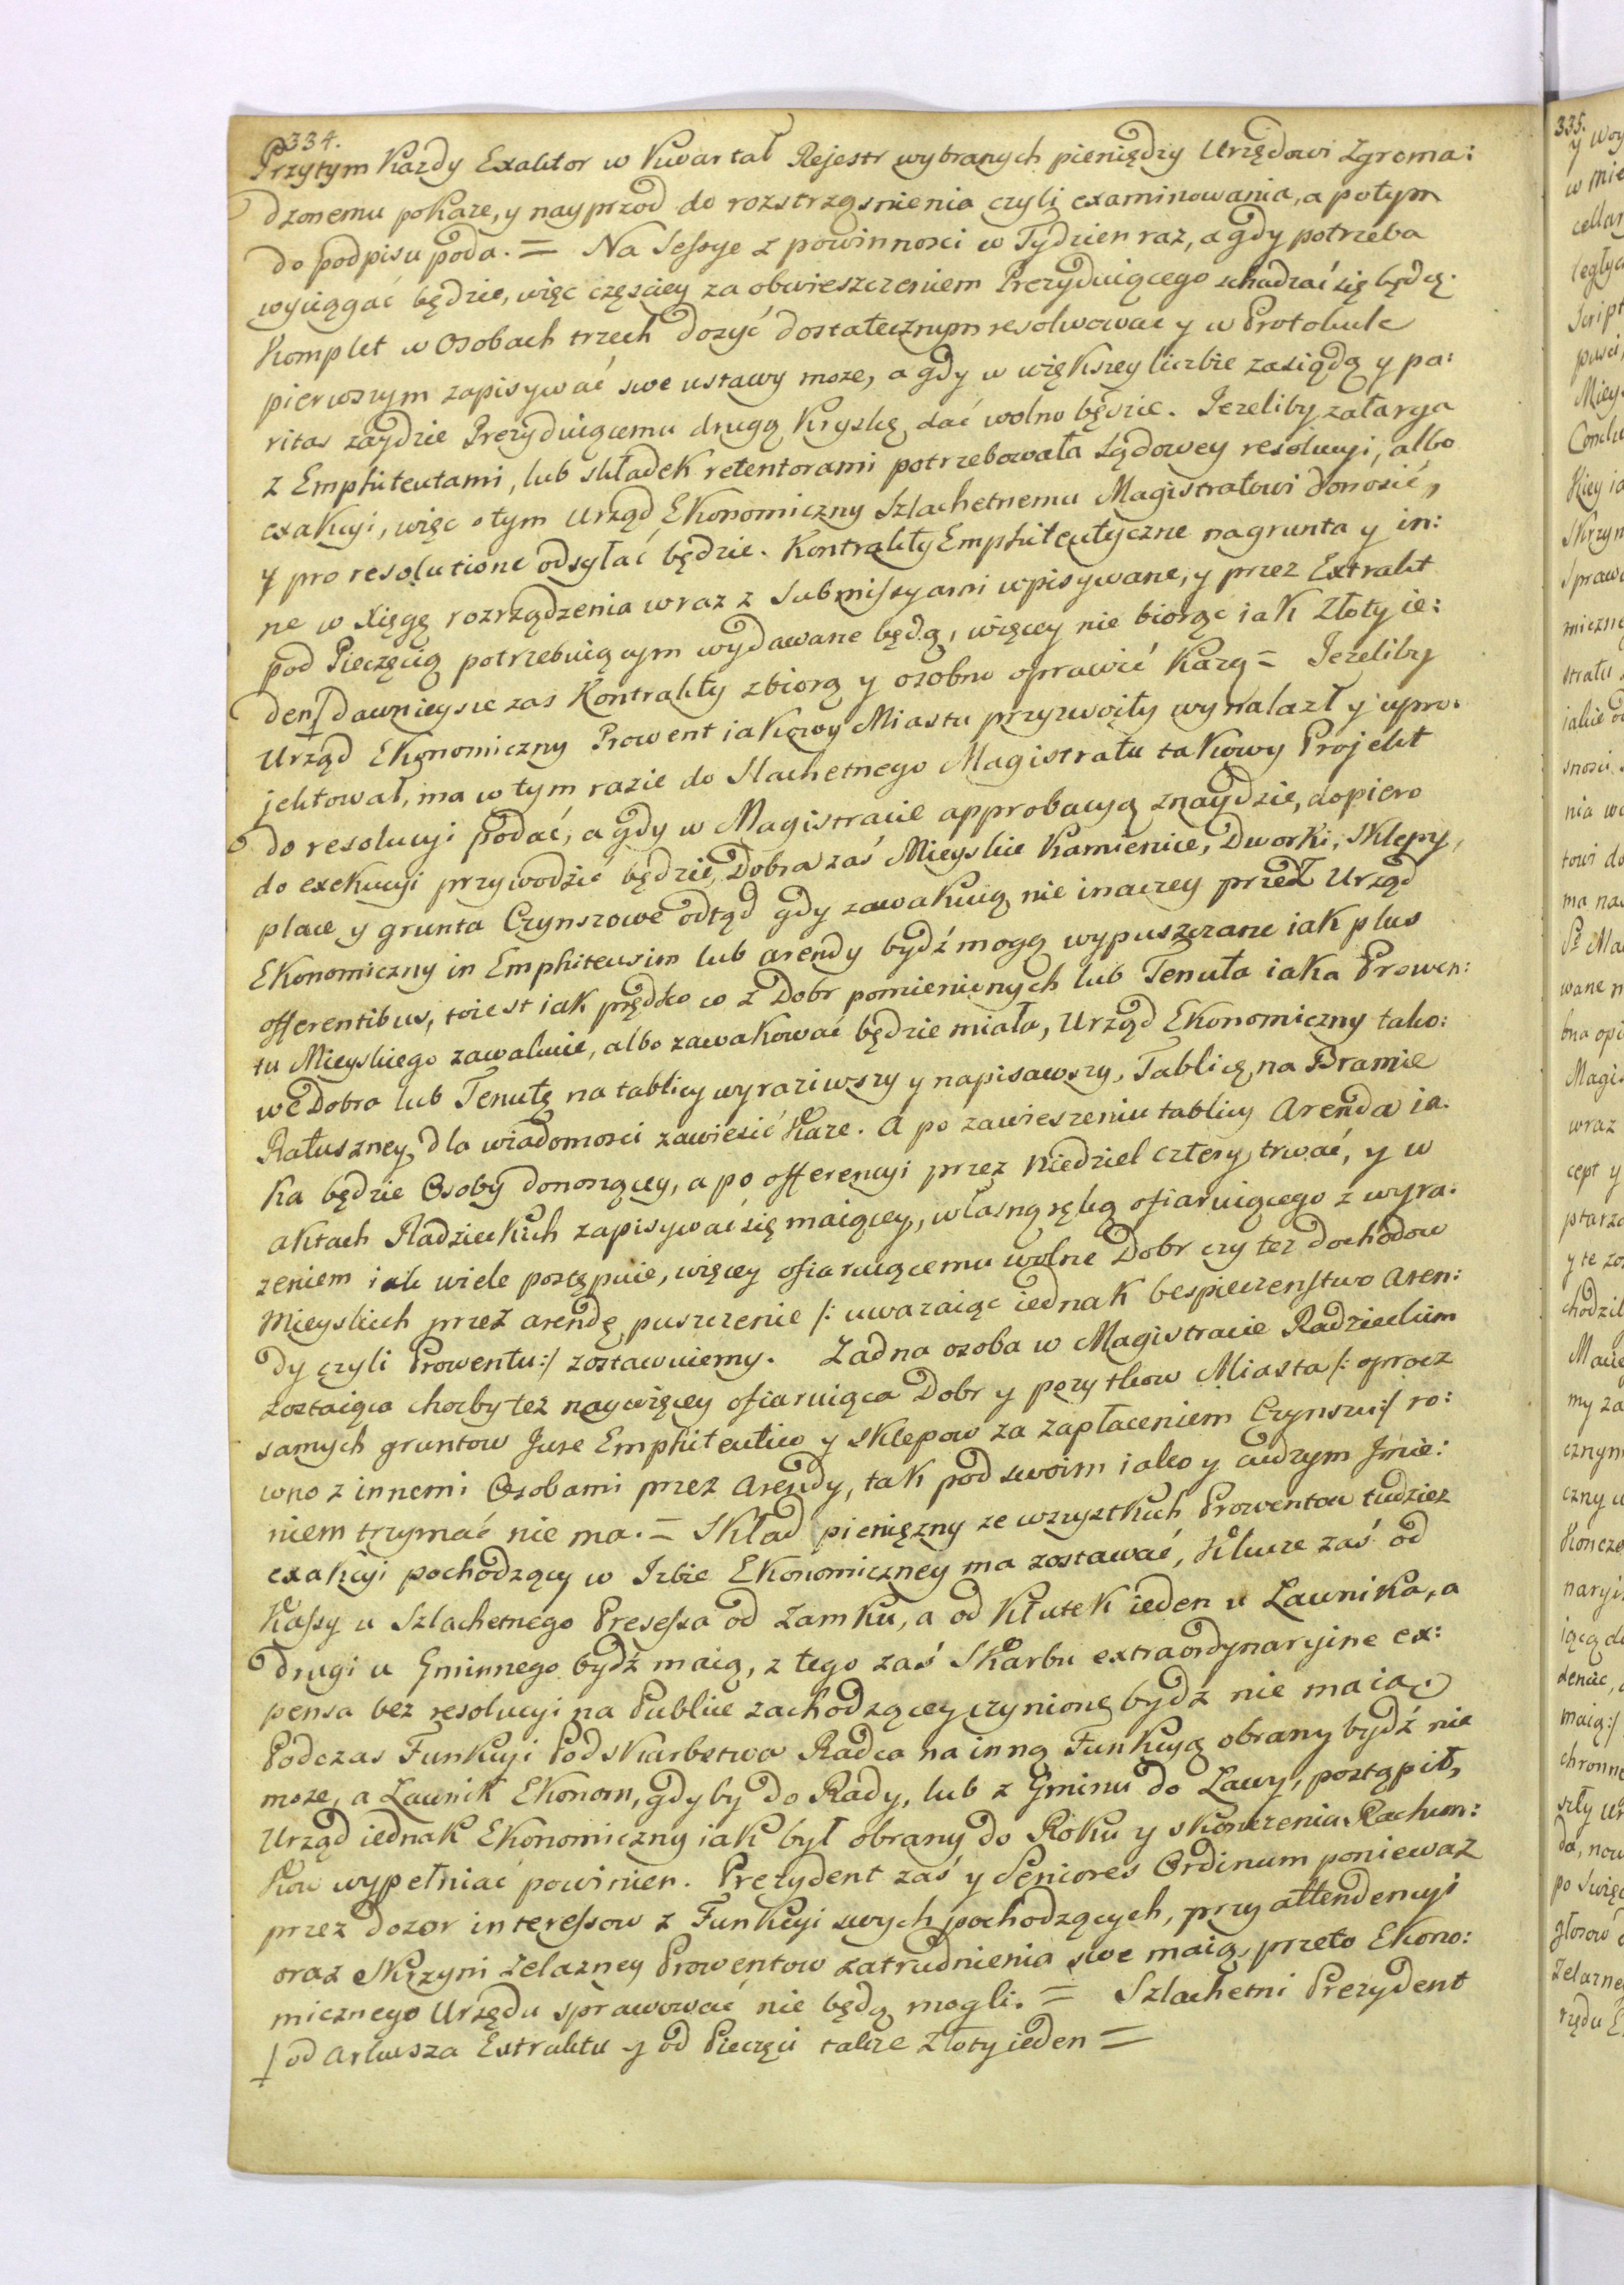 334.
Przytym Kazdy Exaktor w Kwartał Rejestr wybranych pieniędzy Urzędowi Zgroma:
dzonemu pokaze, y nayprzod do rozstrząsnienia czyli examinowania, a potym
do podpisu poda. = Na Sessye z powinnosci w Tydzien raz, a gdy potrzeba
wyciągać będzie, więc częsciey za obwieszczeniem Prezyduiącego schadzać się będą.
Komplet w Osobach trzech dozyć dostatecznym resolwować y w Protokule
pierwszym zapisywać swe ustawy moze, a gdy w większey liczbie zasiędą y pa:
ritas zaydzie Prezyduiącemu drugą Kryskę dać wolno będzie. Jezeliby załarga
z Emphiteutami, lub składek retentorami potrzebowała Sądowey resolucyi, albo
exakcyi, więc o tym Urząd Ekonomiczny Szlachetnemu Magistratowi donosić,
y pro resolutione odsyłać będzie. Kontrakty Emphiteutyczne na grunta y in:
ne w Xięgę rozrządzenia wraz z Submissyami wpisywane, y przez Extrakt
pod Pieczęcią potrzebuiącym wydawane będą, więcey nie biorąc iak Złoty ie:
den ꝉ dawnieysze zas Kontrakty zbiorą y osobno oprawić Każą = Jezeliby
Urząd Ekonomiczny Prowent iakowy Miastu przyzwoity wynalazł y upro:
jektował, ma w tym razie do Slachetnego Magistratu takowy Projekt
do resolucyi podać, a gdy w Magistracie approbacyą znaydzie, dopiero
do exekucyi przywodzić będzie, Dobra zaś Mieyskie Kamienice, Dworki, Sklepy,
place y grunta Czynszowe odtąd gdy zawakuią nie inaczey przez Urząd
Ekonomiczny in Emphiteusim lub arendy bydź mogą wypuszczane iak plus
offerentibus, to iest iak prędko co z Dobr pomienionych lub Tenuta iaka Prowen:
tu Mieyskiego zawakuie, albo zawakować będzie miała, Urząd Ekonomiczny tako:
we Dobra lub Tenutę na tablicy wyraziwszy y napisawszy, Tablicę na Bramie
Ratuszney dla wiadomosci zawiesić Kaze. A po zawieszeniu tablicy Arenda ia:
ka będzie Osoby donoszącey, a po offerencyi przez Niedziel cztery trwać, y w
aktach Radzieckich zapisywać się maiącey, własną ręką ofiaruiącego z wyra:
zeniem iak wiele postępuie, więcey ofiaruiącemu wolne Dobr czy tez dochodow
Mieyskich przez arendę puszczenie /: uwazaiąc iednak bespieczenstwo Aren:
dy czyli Prowentu:/ zostawuiemy. Zadna osoba w Magistracie Radzieckim
zostaiąca chocby tez naywięcey ofiaruiąca Dobr y pozytkow Miasta /: oprocz
samych gruntow Jure Emphiteutico y sklepow za zapłaceniem Czynszu:/ ro:
wno z innemi Osobami przez Arendy, tak pod swoim iako y cudzym Jmie:
niem trzymać nie ma. = Skład pienięzny ze wszystkich Prowentow tudziez
exakcyi pochodzący w Izbie Ekonomiczney ma zostawać, Klucze zaś od
Kassy u Szlachetnego Presessa od Zamku, a od Kłutek ieden u Ławnika, a
drugi u Gminnego bydź maią, z tego zaś Skarbu extraordynaryine ex:
pensa bez resolucyi na Publice zachodzącey czynione bydź nie maią.
Podczas Funkcyi Podskarbstwa Radca na inną Funkcyą obrany bydź nie
moze, a Ławnik Ekonom, gdyby do Rady, lub z Gminu do Ławy, postąpił,
Urząd iednak Ekonomiczny iak był obrany do Roku y skonczenia Rachun:
kow wypełniać powinien. Prezydent zaś y Seniores Ordinum poniewaz
przez dozor interessow z Funkcyi swych pochodzących, przy attendencyi
oraz Skrzyni Zelazney Prowentow zatrudnienia swe maią, przeto Ekono:
micznego Urzędu sprawować nie będą mogli. = Szlachetni Prezydent
ꝉ od Arkusza Extraktu y od Pieczęci takze Złoty ieden =
335.